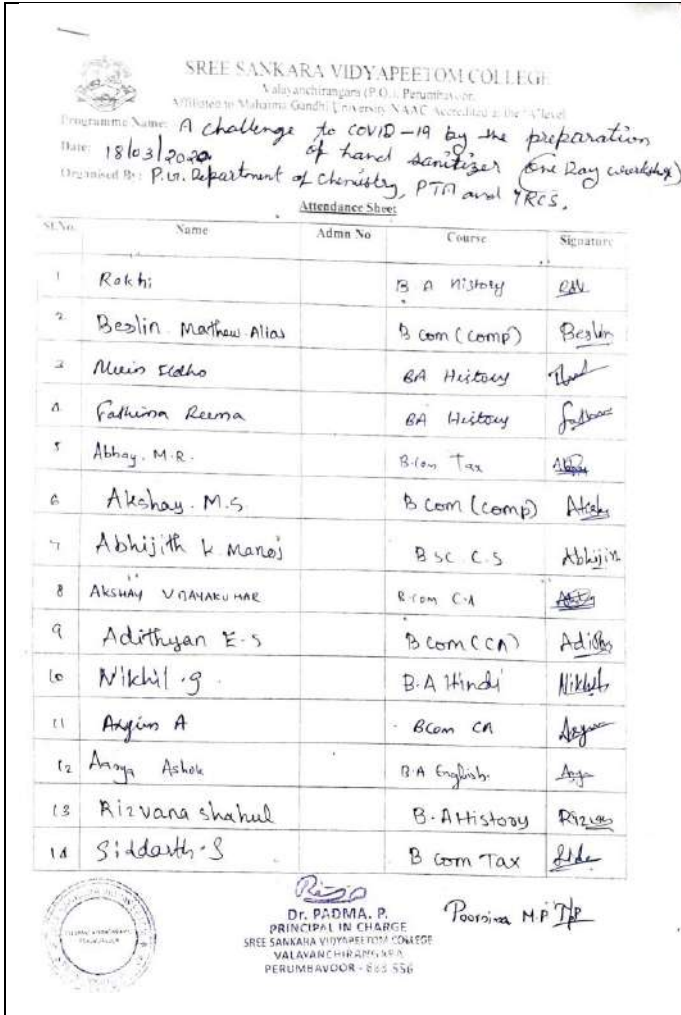 SREE SANKARA VIDYAPEETOM COLLEGE
Valayanchirangara (P.O.), Perumbavoor
Affiliated to Mahatma Gandhi University NAAC Accredited at the 'A' level
Programme Name: A challenge to COVID-19 by the preparation
of hand sanitizer (One Day workshop)
Date: 18/03/2020
Organised By: P.G. Department of Chemistry, PTA and YRCS.
Attendance Sheet
Sl.No. Name Admn No Course Signature
1 Rakhi B A History
2 Beslin Mathew Alias B com (comp) Beslin
3 Eldho BA History
4 Fathima Reema BA History
5 Abhay. M.R. B.Com Tax
6 Akshay. M.S B com (comp)
7 Abhijith K Manoj B SC C.S Abhijith
8 AKSHAY VIJAYAKUMAR B.com C.A
9 Adithyan E.S B com (CA)
10 Nikhil .g. B.A Hindi
11 Arjun A BCom CA
12 Aarya Ashok B.A English.
13 Rizvana shahul B.A History
14 Siddarth.S B com Tax
Dr. PADMA. P.
PRINCIPAL IN CHARGE
SREE SANKARA VIDYAPEETOM COLLEGE
VALAYANCHIRANGARA
PERUMBAVOOR - 683 556
Poornima M.P